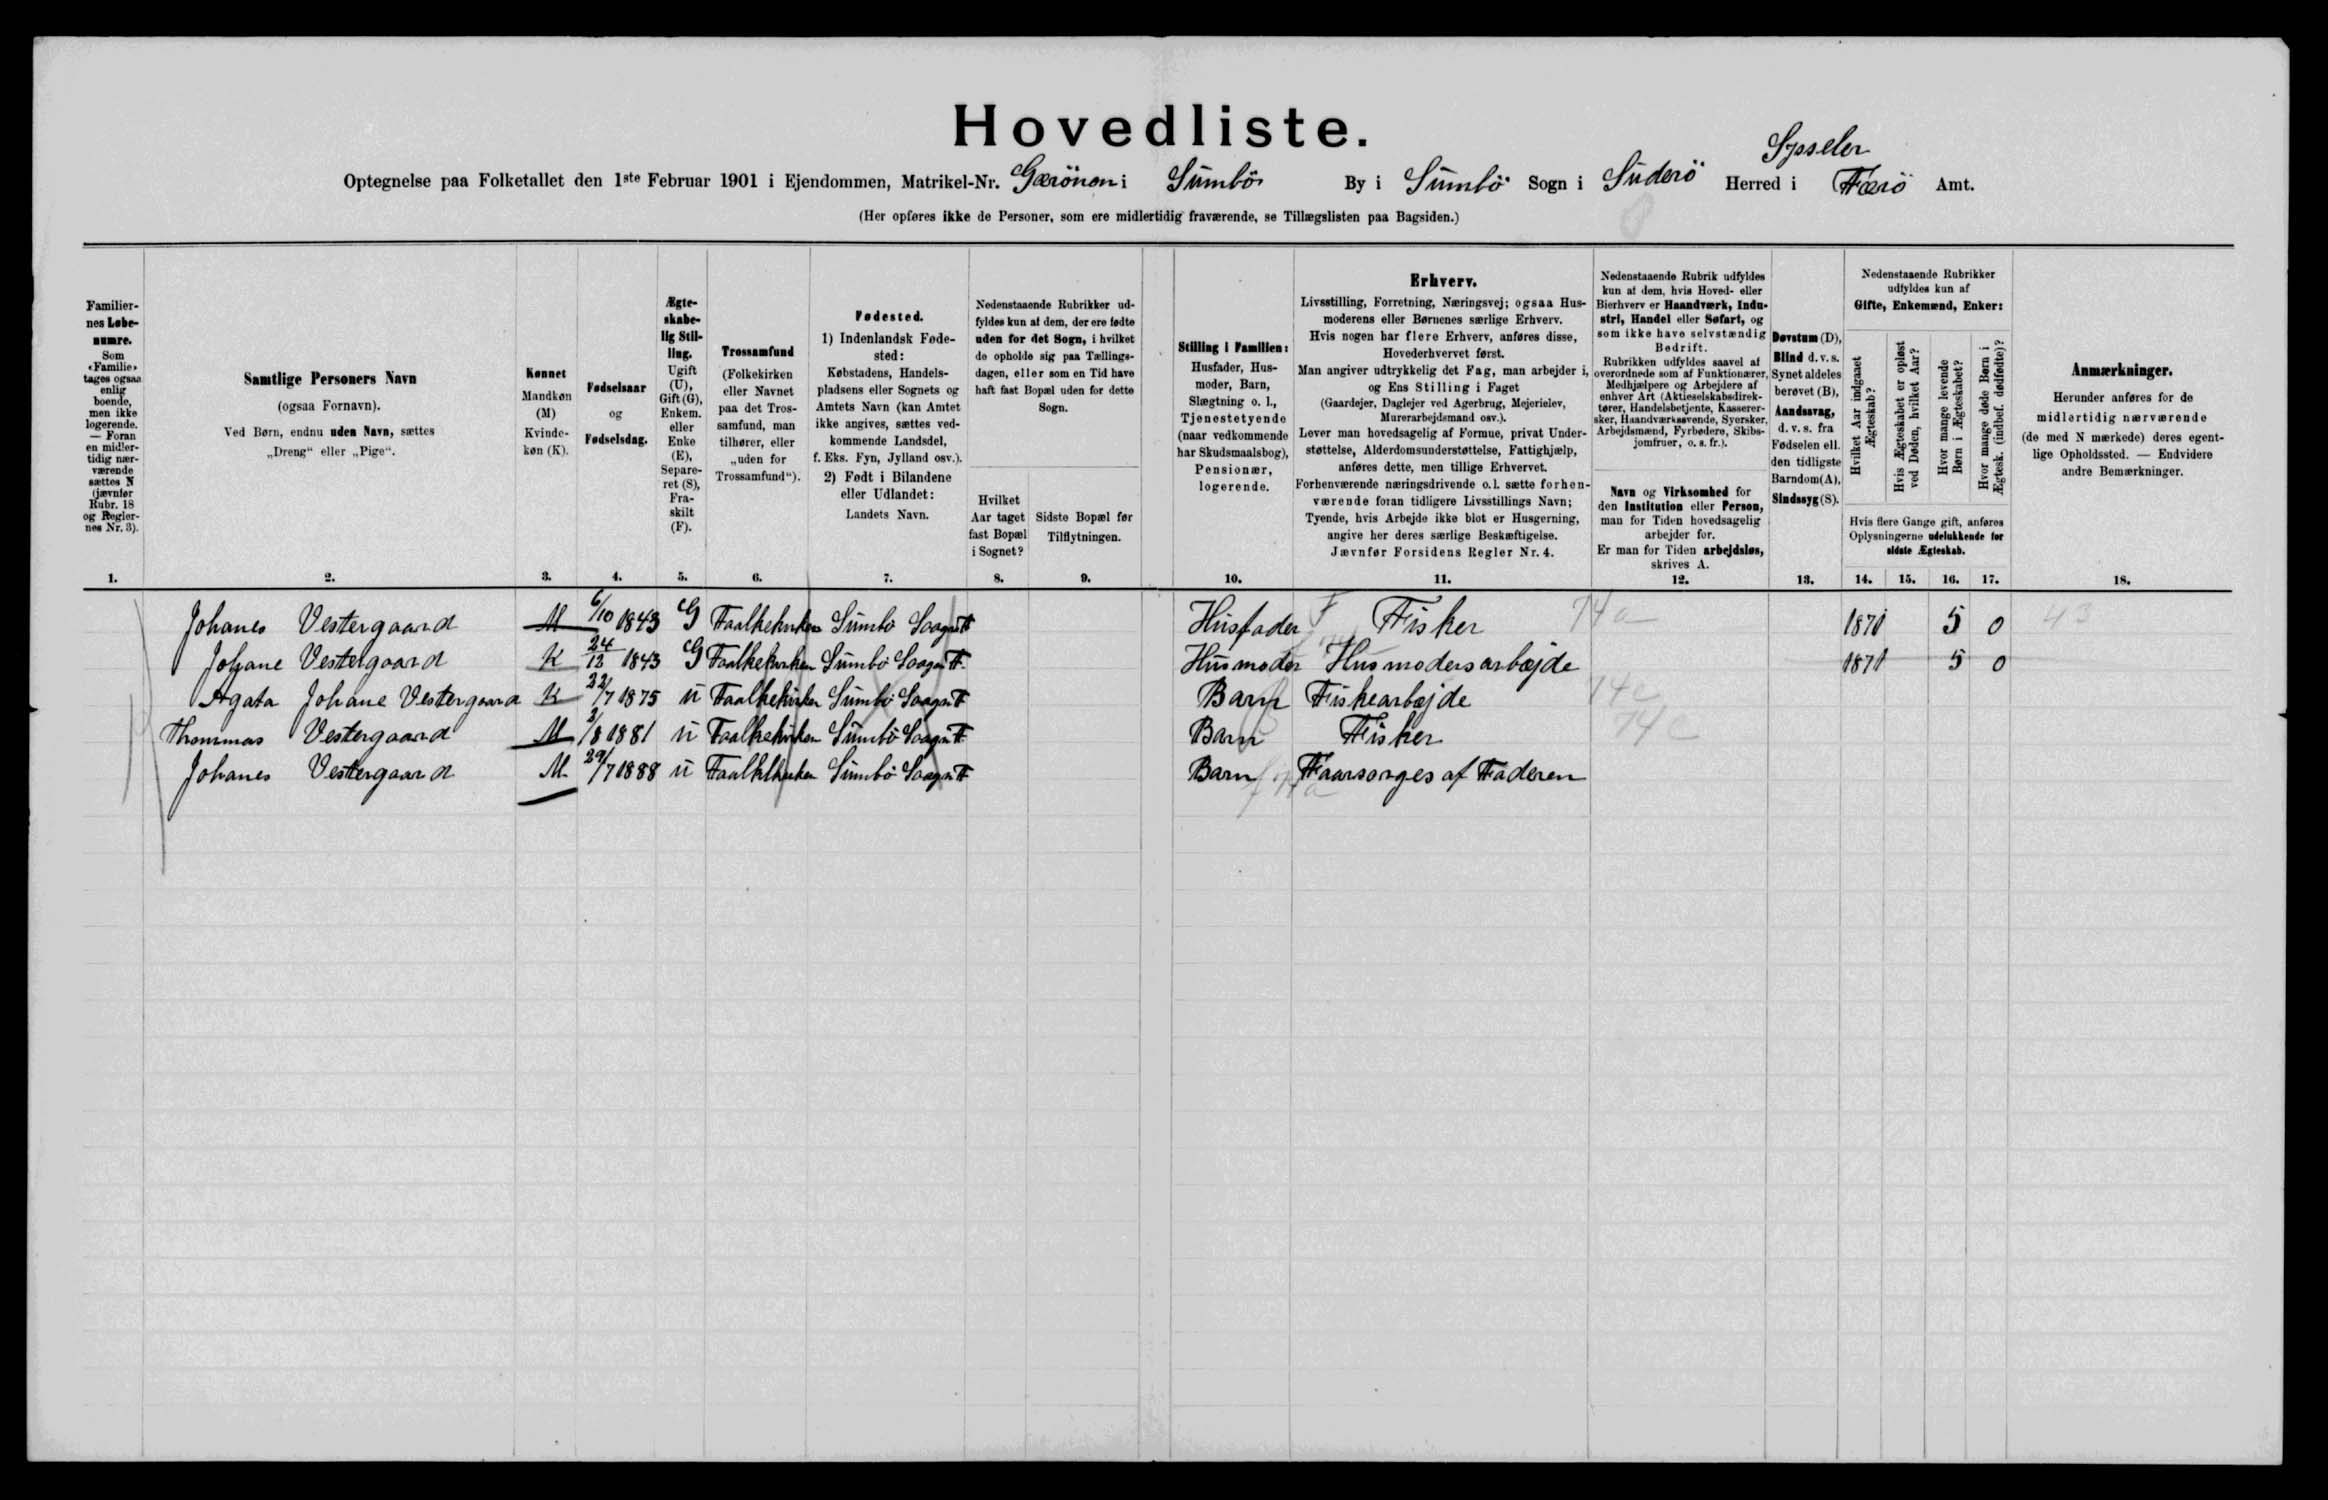 Hovedliste.
Sysseler
Optegnelse paa Folketallet den 1ste Februar 1901 i Ejendommen, Matrikel-Nr. Gærönon i Sumbö By i Sumbö Sogn i Suderö Herred i Færö Amt.
(Her opføres ikke de Personer, som ere midlertidig fraværende, se Tillægslisten paa Bagsiden.)
Familier-
nes Løbe-
numre.
Som
«Familie»
tages ogsaa
enlig
boende,
men ikke
logerende.
— Foran
en midler-
tidig nær-
værende
sættes N
(jævnfør
Rubr. 18
og Regler-
nes Nr. 3).
Samtlige Personers Navn
(ogsaa Fornavn).
Ved Børn, endnu uden Navn, sættes
„Dreng“ eller „Pige“.
Kønnet
Mandkøn
(M)
Kvinde-
køn (K).
Fødselsaar
og
Fødselsdag.
Ægte-
skabe-
lig Stil-
ling.
Ugift
(U),
Gift (G),
Enkem.
eller
Enke
(E),
Separe-
ret (S),
Fra-
skilt
(F).
Trossamfund
(Folkekirken
eller Navnet
paa det Tros-
samfund, man
tilhører, eller
„uden for
Trossamfund“).
Fødested.
1) Indenlandsk Føde-
sted:
Købstadens, Handels-
pladsens eller Sognets og
Amtets Navn (kan Amtet
ikke angives, sættes ved-
kommende Landsdel,
f. Eks. Fyn, Jylland osv.).
2) Født i Bilandene
eller Udlandet:
Landets Navn.
Nedenstaaende Rubrikker ud-
fyldes kun af dem, der ere fødte
uden for det Sogn, i hvilket
de opholde sig paa Tællings-
dagen, eller som en Tid have
haft fast Bopæl uden for dette
Sogn.
Hvilket
Aar taget
fast Bopæl
i Sognet?
Sidste Bopæl før
Tilflytningen.
Stilling i Familien:
Husfader, Hus-
moder, Barn,
Slægtning o. l.,
Tjenestetyende
(naar vedkommende
har Skudsmaalsbog),
Pensionær,
logerende.
Erhverv.
Livsstilling, Forretning, Næringsvej; ogsaa Hus-
moderens eller Børnenes særlige Erhverv.
Hvis nogen har flere Erhverv, anføres disse,
Hovederhvervet først.
Man angiver udtrykkelig det Fag, man arbejder i,
og Ens Stilling i Faget
(Gaardejer, Daglejer ved Agerbrug, Mejerielev,
Murerarbejdsmand osv.).
Lever man hovedsagelig af Formue, privat Under-
støttelse, Alderdomsunderstøttelse, Fattighjælp,
anføres dette, men tillige Erhvervet.
Forhenværende næringsdrivende o. l. sætte forhen-
værende foran tidligere Livsstillings Navn;
Tyende, hvis Arbejde ikke blot er Husgerning,
angive her deres særlige Beskæftigelse.
Jævnfør Forsidens Regler Nr. 4.
Nedenstaaende Rubrik udfyldes
kun af dem, hvis Hoved- eller
Bierhverv er Haandværk, Indu-
stri, Handel eller Søfart, og
som ikke have selvstændig
Bedrift.
Rubrikken udfyldes saavel af
overordnede som af Funktionærer,
Medhjælpere og Arbejdere af
enhver Art (Aktieselskabsdirek-
tører, Handelsbetjente, Kasserer-
sker, Haandværkssvende, Syersker,
Arbejdsmænd, Fyrbødere, Skibs-
jomfruer, o. s. fr.).
Navn og Virksomhed for
den Institution eller Person,
man for Tiden hovedsagelig
arbejder for.
Er man for Tiden arbejdsløs,
skrives A.
Døvstum (D),
Blind d. v. s.
Synet aldeles
berøvet (B),
Aandssvag,
d. v. s. fra
Fødselen ell.
den tidligste
Barndom (A),
Sindssyg (S).
Nedenstaaende Rubrikker
udfyldes kun af
Gifte, Enkemænd, Enker:
Hvilket Aar indgaaet
Ægteskab?
Hvis Ægteskabet er opløst
ved Døden, hvilket Aar?
Hvor mange levende
Børn i Ægteskabet?
Hvor mange døde Børn i
Ægtesk. (indbef. dødfødte)?
Hvis flere Gange gift, anføres
Oplysningerne udelukkende for
sidste Ægteskab.
Anmærkninger.
Herunder anføres for de
midlertidig nærværende
(de med N mærkede) deres egent-
lige Opholdssted. — Endvidere
andre Bemærkninger.
1. 2. 3. 4. 5. 6. 7. 8. 9. 10. 11. 12. 13. 14. 15. 16. 17. 18.
Johanes Vestergaard M 6/10 1843 G Faalkekirken Sumbö Saagn F Husfader Fisker 74a 1871 5 0 43
Johane Vestergaard K 24/12 1843 G Faalkekirken Sumbö Saagn F Husmoder Husmodersarbejde 1871 5 0
Agata Johane Vestergaard K 22/7 1875 U Faalkekirken Sumbö Saagn F Barn Fiskearbejde 74c
Thommas Vestergaard M 3/8 1881 U Faalkekirken Sumbö Saagn F Barn Fisker 74c
Johanes Vestergaard M 29/7 1888 U Faalkekirken Sumbö Saagn F Barn Faarsorges af Faderen